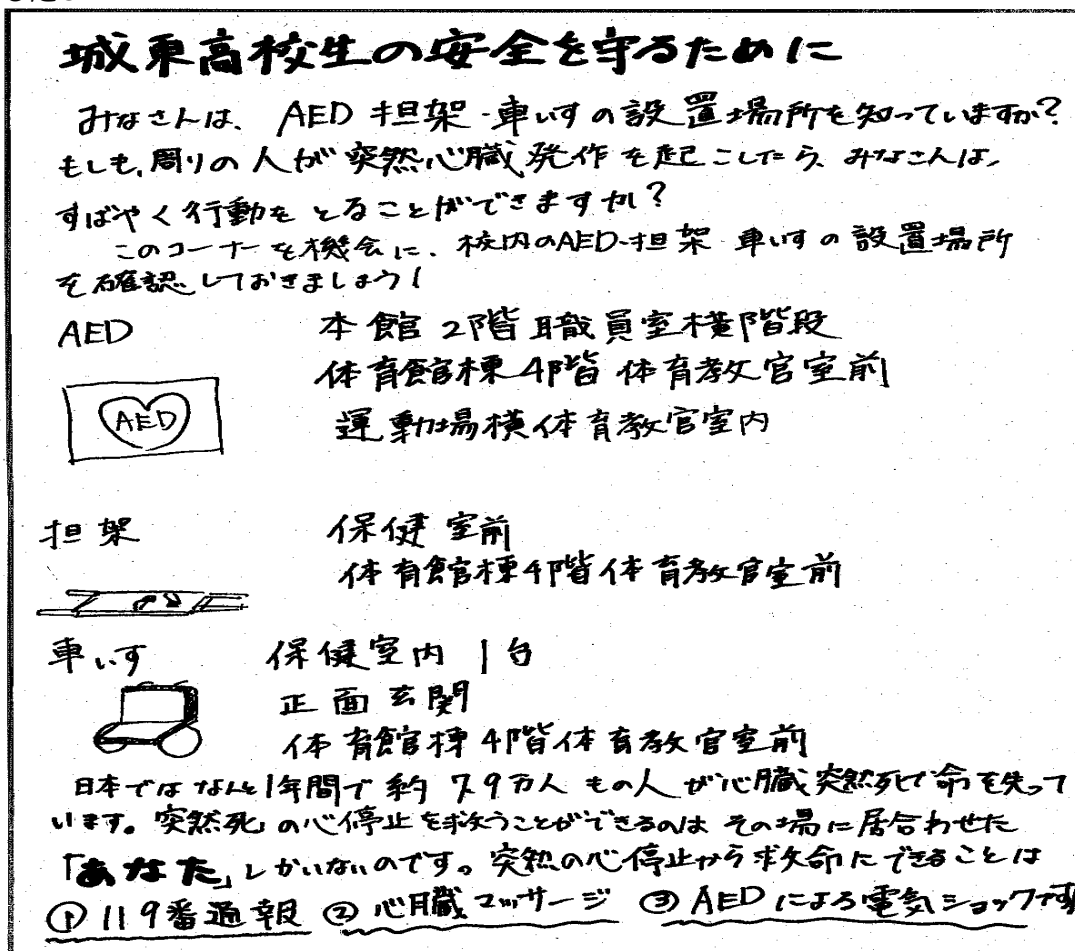 城東高校生の安全を守るために
みなさんは、AED 担架・車いすの設置場所を知っていますか?
もしも、周りの人が突然心臓発作を起こしたら、みなさんは、
すばやく行動をとることができますか?
このコーナーを機会に、校内のAED・担架 車いすの設置場所
を確認しておきましょう!
AED 本館2階職員室横階段
体育館棟4階体育教官室前
AED
運動場横体育教官室内
担架 保健室前
体育館棟4階体育教官室前
車いす 保健室内 1台
正面玄関
体育館棟4階体育教官室前
日本ではなんと1年間で約7.9万人もの人が心臓突然死で命を失って
います。突然死の心停止を救うことができるのはその場に居合わせた
「あなた」しかいないのです。突然の心停止から救命にできることは
①119番通報 ②心臓マッサージ ③AEDによる電気ショックです